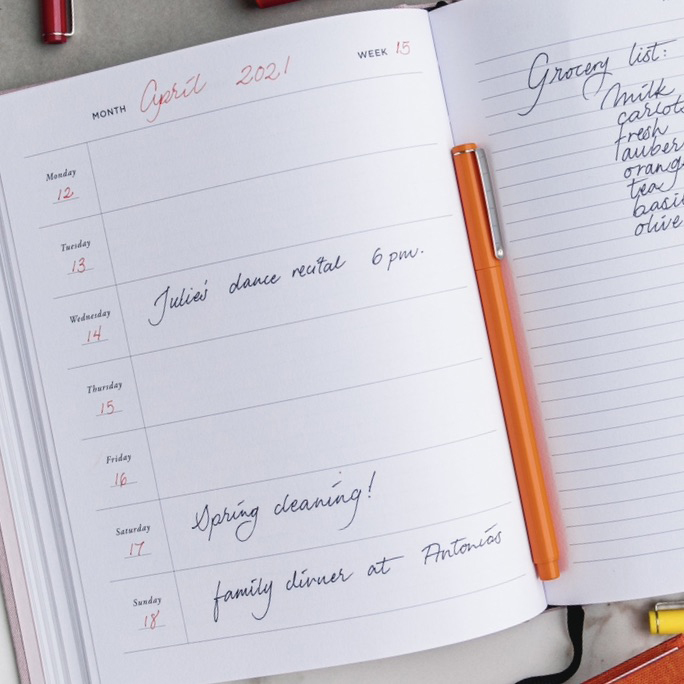 MONTH April 2021 WEEK 15
Monday
12
Tuesday
13
Wednesday
14
Julie's dance recital 6 pm.
Thursday
15
Friday
16
Saturday
17
Spring cleaning!
Sunday
18
family dinner at Antonia's
Grocery list:
Milk
carlots
fresh
tea
olive